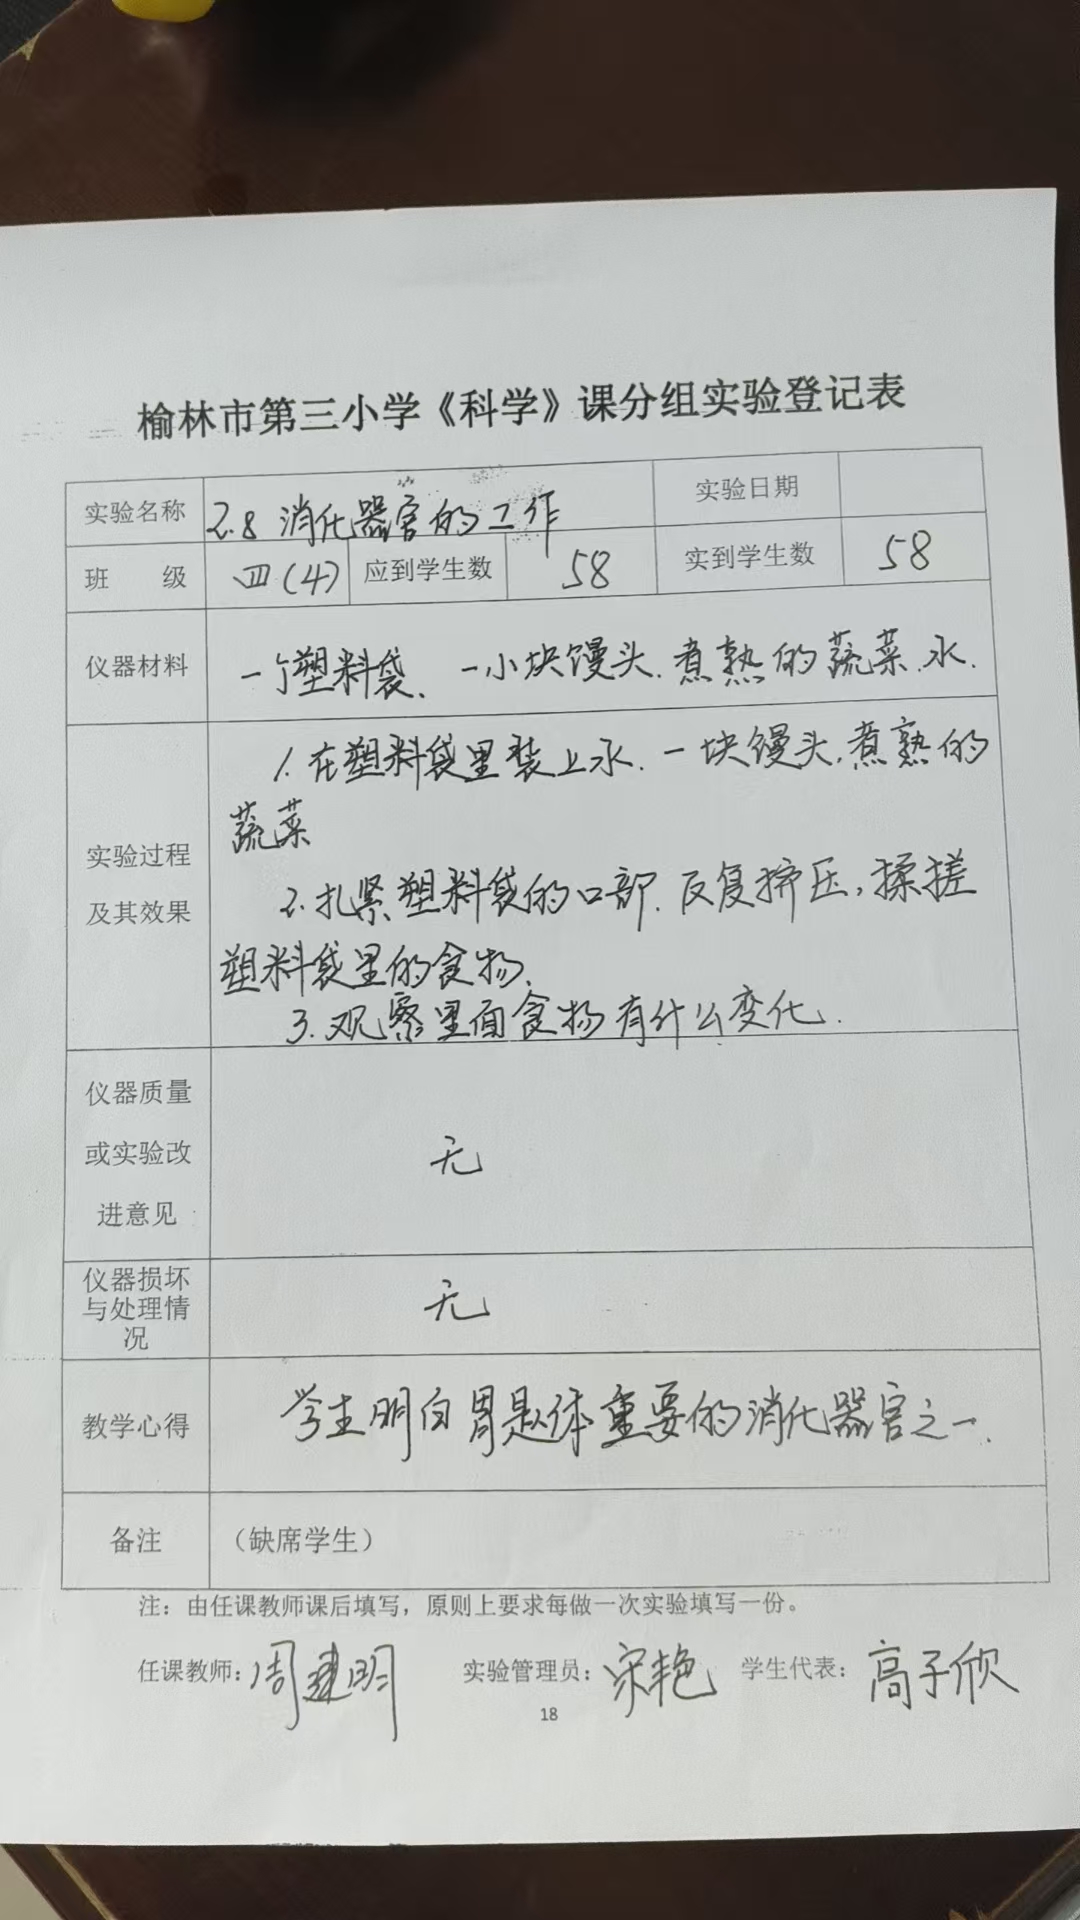 榆林市第三小学《科学》课分组实验登记表
实验名称 2.8 消化器官的工作 实验日期
班 级 四(4) 应到学生数 58 实到学生数 58
仪器材料 一个塑料袋、一小块馒头、煮熟的蔬菜、水.
1. 在塑料袋里装上水、一块馒头,煮熟的
蔬菜
实验过程
及其效果
2. 扎紧塑料袋的口部、反复挤压,揉搓
塑料袋里的食物、
3. 观察里面食物有什么变化.
仪器质量
或实验改
进意见
无
仪器损坏
与处理情
况
无
教学心得 学生明白胃是体重要的消化器官之一、
备注 (缺席学生)
注:由任课教师课后填写,原则上要求每做一次实验填写一份。
任课教师:周建明 实验管理员:宋艳 学生代表:高子欣
18